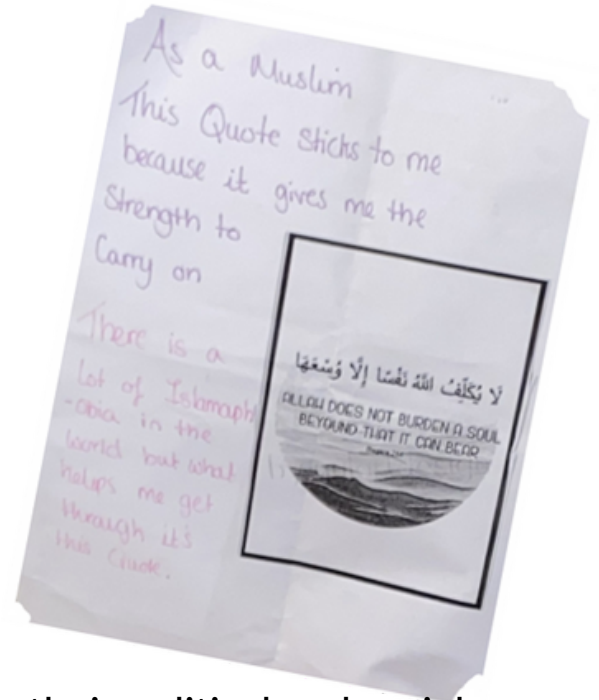 As a Muslim
This Quote Sticks to me
because it gives me the
Strength to
Carry on
There is a
Lot of Islamaph
-obia in the
world but what
helps me get
through it's
this Quote.
لَا يُكَلِّفُ اللَّهُ نَفْسًا إِلَّا وُسْعَهَا
ALLAH DOES NOT BURDEN A SOUL
BEYOUND THAT IT CAN BEAR